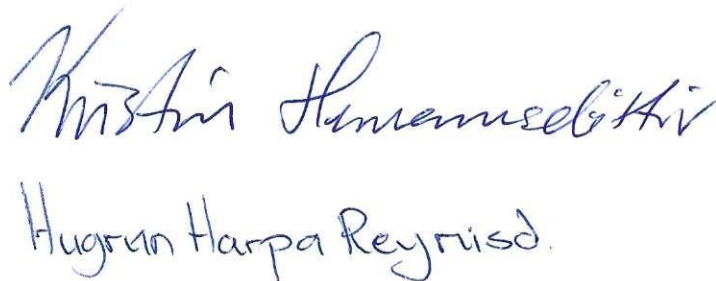 Kristín Hermannsdóttir
Hugrún Harpa Reynisd.